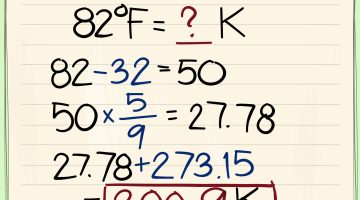 82°F = ? K
82-32 = 50
50 x 5/9 = 27.78
27.78+273.15
=